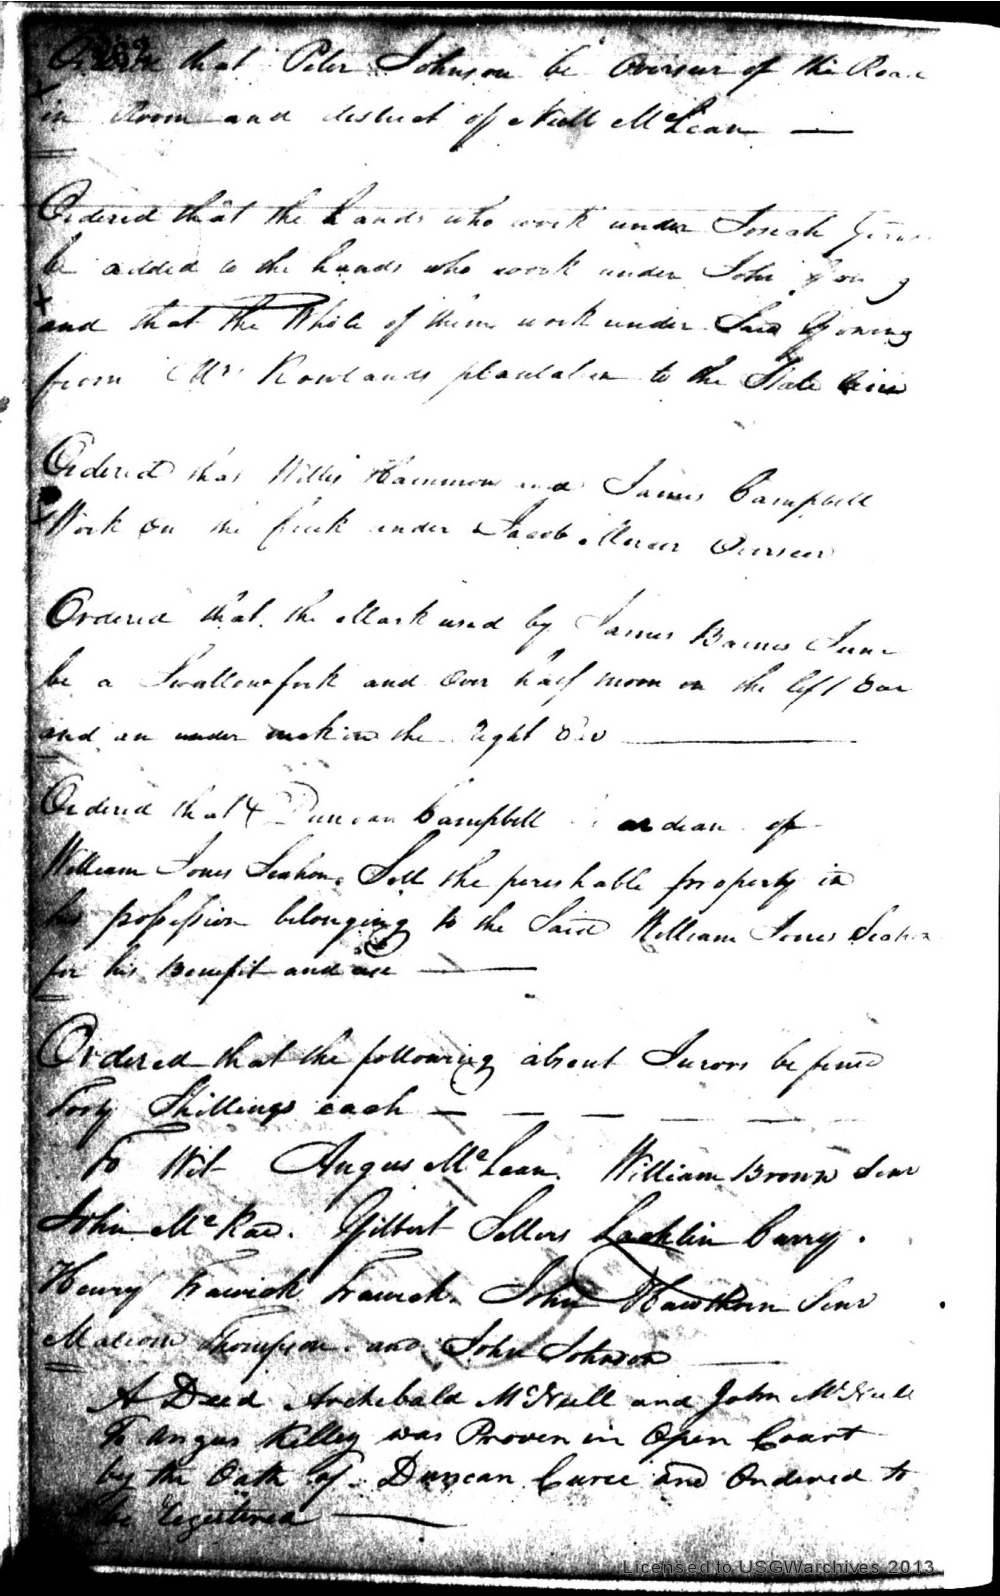 that Peter Johnson be Overseer of the Road
in Room and district of Neill McLean
Ordered that the hands who work under Josiah
be added to the hands who work under John Young
and that the Whole of them work under Said Young
from Mr Rowlands plantation to the State line
Ordered that Willis Hammon and James Campbell
Work on the Creek under Jacob Mercer Overseer
Ordered that the Mark used by James Barnes Junr
be a Swallowfork and Over half moon on the left Ear
and an under in the Right Ear
Ordered that Duncan Campbell of
William Jones Sell the perishable property in
his possession belonging to the Said William Jones
for his Benefit and use
Ordered that the following absent Jurors be fined
Forty Shillings each
To Wit Angus McLean. William Brown Senr
John McRae. Gilbert Sellers Lachlin Curry.
Henry John Hawthorn Senr
Malcom Thompson. and John Johnson
A Deed Archebald McNeill and John McNeill
To Angus Kelley was Proven in Open Court
by the Oath of Duncan and Ordered to
be Registered
Licensed to USGWarchives 2013